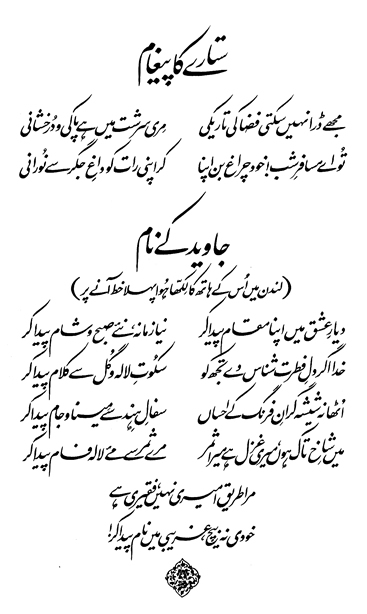 ستارے کا پیغام
مجھے ڈرا نہیں سکتی فضا کی تاریکی مری سرشت میں ہے پاکی و درخشانی
تو اے مسافرِ شب! خود چراغ بن اپنا کر اپنی رات کو داغِ جگر سے نورانی
جاوید کے نام
(لندن میں اُس کے ہاتھ کا لکھا ہوا پہلا خط آنے پر)
دیارِ عشق میں اپنا مقام پیدا کر نیا زمانہ، نئے صبح و شام پیدا کر
خدا اگر دلِ فطرت شناس دے تجھ کو سکوتِ لالہ و گل سے کلام پیدا کر
اُٹھا نہ شیشہ گرانِ فرنگ کے احساں سفالِ ہند سے مینا و جام پیدا کر
میں شاخِ تاک ہوں، میری غزل ہے میرا ثمر مرے ثمر سے مئے لالہ فام پیدا کر
مرا طریق امیری نہیں، فقیری ہے
خودی نہ بیچ، غریبی میں نام پیدا کر!